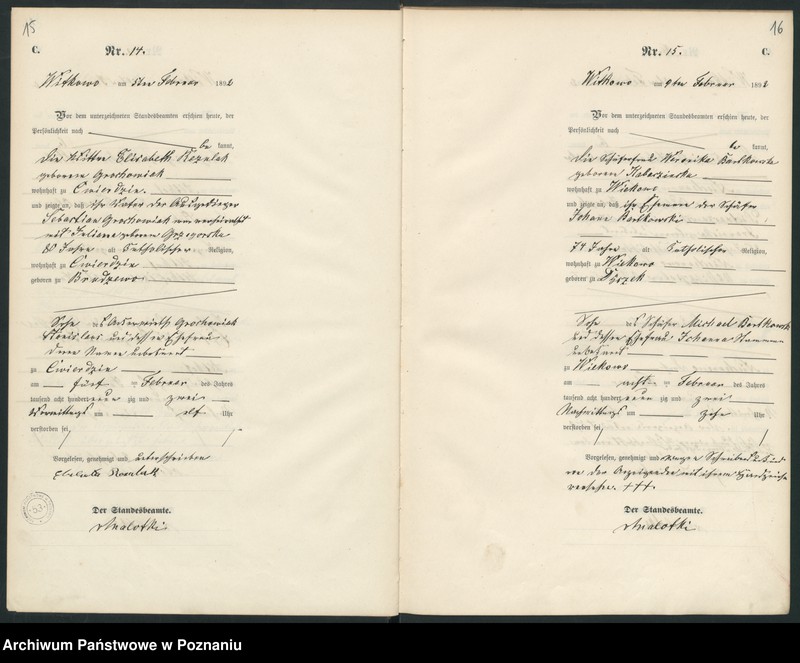 15
C.
Nr. 14.
Witkowo am 5ten Februar 1892
Vor dem unterzeichneten Standesbeamten erschien heute, der
Persönlichkeit nach
be kannt,
die Wittwe Elisabeth
geborene Grochowiak
wohnhaft zu Cwierdzin
und zeigte an, daß ihr Vater der
Sebastian Grochowiak
mit Juliana geboren
80 Jahre alt katholischer Religion,
wohnhaft zu Cwierdzin
geboren zu
Sohn des Ackerwirth Grochowiak
und dessen Ehefrau
deren Name unbekannt
zu Cwierdzin
am fünf ten Februar des Jahres
tausend acht hundert neun zig und zwei
Vormittags um elf Uhr
verstorben sei
Vorgelesen, genehmigt und unterschrieben
Der Standesbeamte.
16
Nr. 15.
C.
Witkowo am 9ten Februar 1892
Vor dem unterzeichneten Standesbeamten erschien heute, der
Persönlichkeit nach
be kannt,
die Schäferfrau Veronika Bartkowska
geboren
wohnhaft zu Wiekowo
und zeigte an, daß ihr Ehemann der Schäfer
Johann Bartkowski
74 Jahre alt katholischer Religion,
wohnhaft zu Wiekowo
geboren zu
Sohn des Schäfer Michael Bartkowski
und dessen Ehefrau Johanna Namen
unbekannt
zu Wiekowo
am acht ten Februar des Jahres
tausend acht hundert neun zig und zwei
Nachmittags um zehn Uhr
verstorben sei
Vorgelesen, genehmigt und wegen Schreibens
der Anzeigenden mit ihrem Handzeichen
versehen. +++.
Der Standesbeamte.
Archiwum Państwowe w Poznaniu